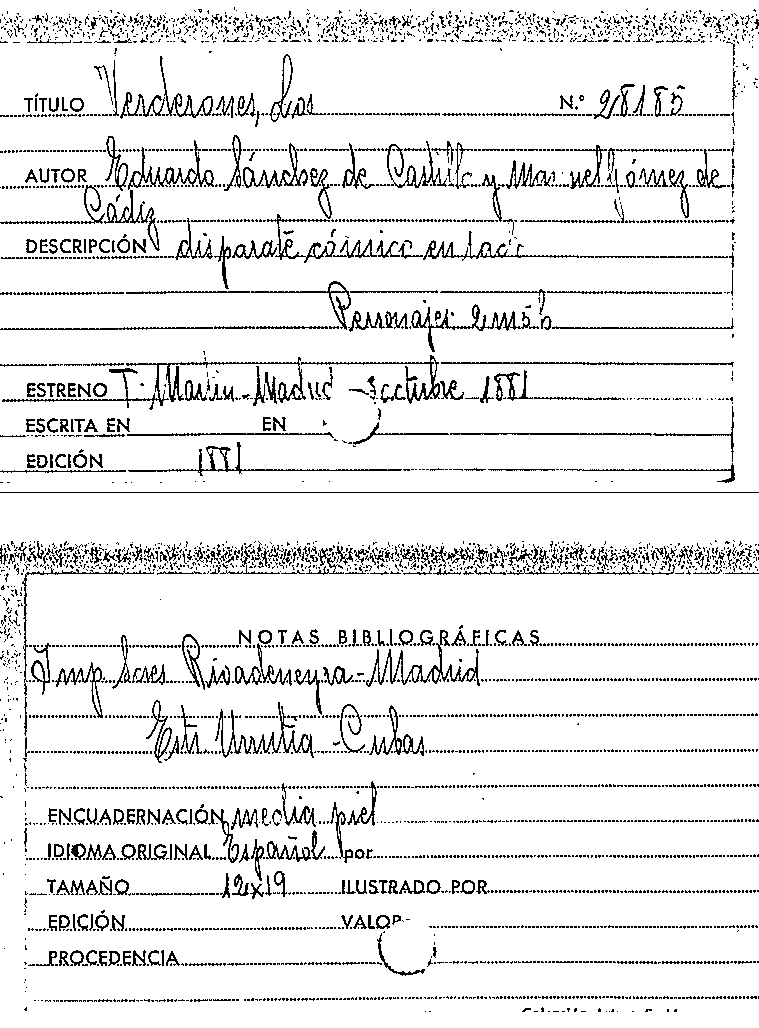 TÍTULO Verderones, Los N.º 28185
AUTOR Eduardo Sánchez de Castilla y Manuel Gómez de
Cádiz
DESCRIPCIÓN disparate cómico en 1 acto
Personajes: 2 m 5 h
ESTRENO T. Martín - Madrid - 3 octubre 1881
ESCRITA EN EN
EDICIÓN 1881
NOTAS BIBLIOGRÁFICAS
Imp Scres Rivadeneyra - Madrid
Estr Urrutia - Cubas
ENCUADERNACIÓN media piel
IDIOMA ORIGINAL Español por
TAMAÑO 12x19 ILUSTRADO POR
EDICIÓN VALOR
PROCEDENCIA